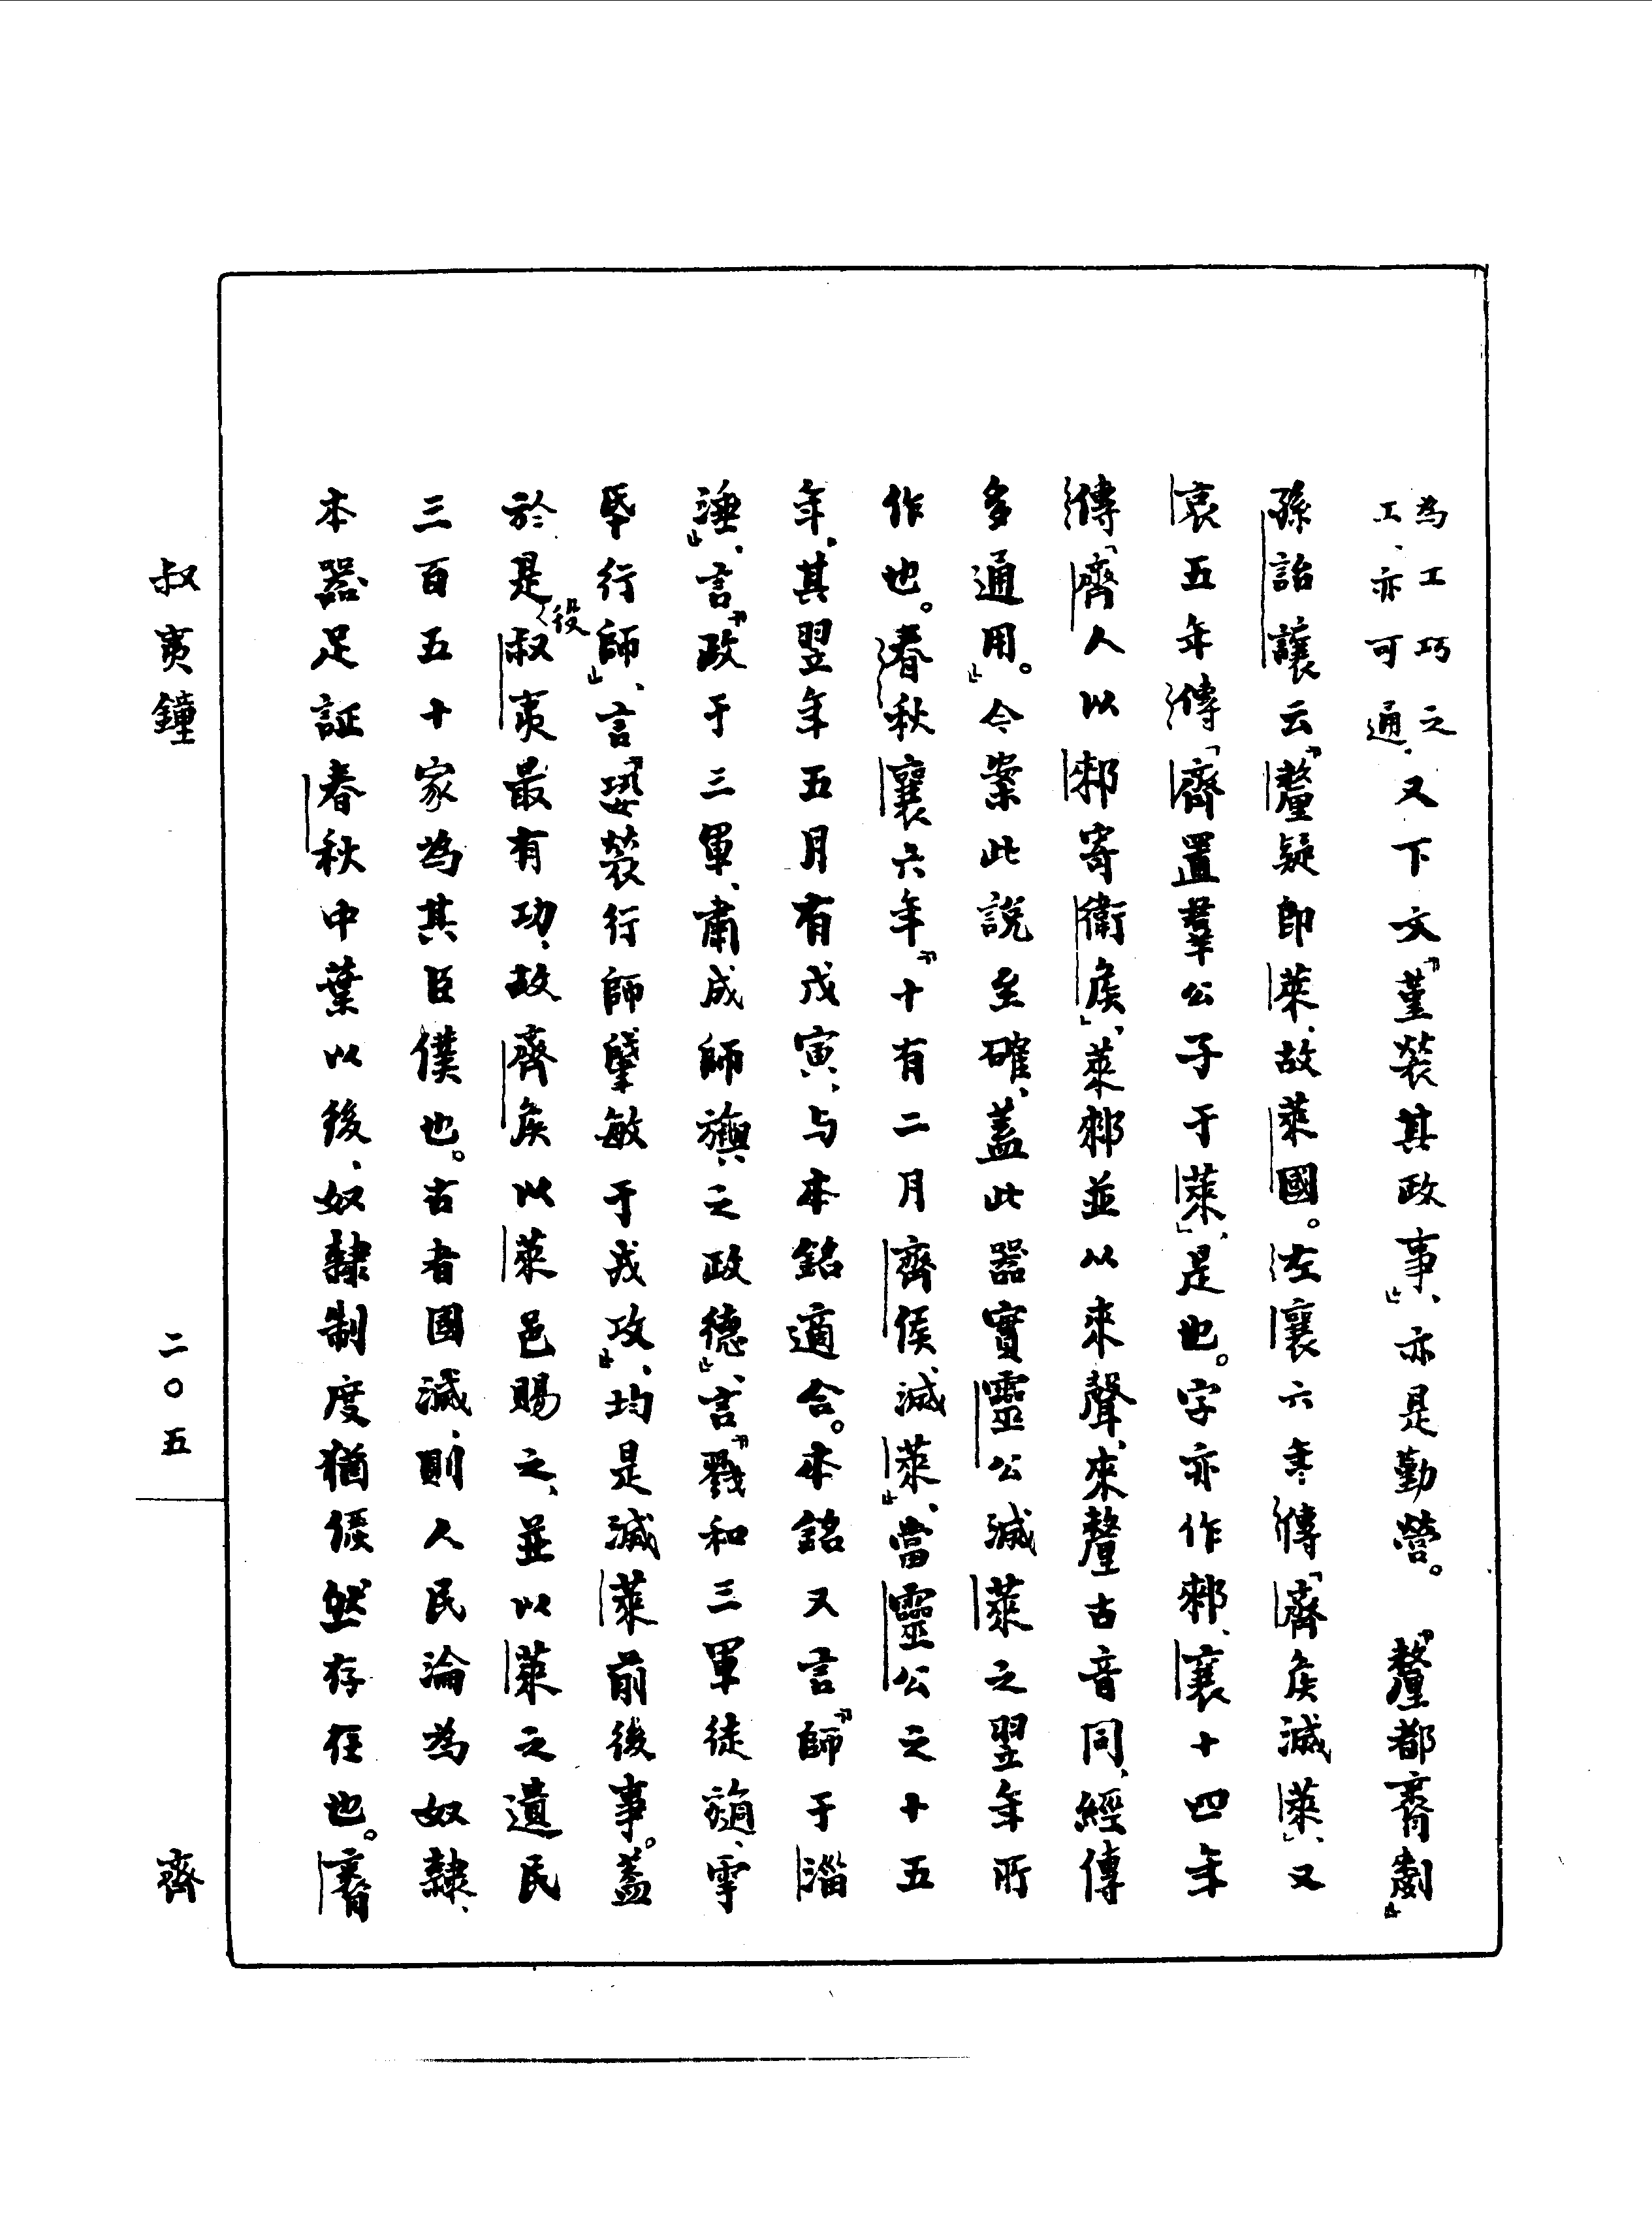 為工巧之
工、亦可通。
又下文『堇裝其政事』、亦是勤營。『釐都𦞤劀』
孫詒讓云『釐疑卽萊、故萊國。左襄六年傳「齊侯滅萊」、又
哀五年傳「齊置羣公子于萊」、是也。字亦作郲、襄十四年
傳「齊人以郲寄衛侯」、萊郲並以來聲、來釐古音同、經傳
多通用。』今案此說至確、蓋此器實靈公滅萊之翌年所
作也。春秋襄六年『十有二月齊侯滅萊』、當靈公之十五
年、其翌年五月有戊寅、与本銘適合。本銘又言『師于淄
涶』、言『政于三軍、肅成師旟之政德』、言『戮和三軍徒旛、雩
氒行師』、言『恐裝行師肇敏于戎攻』、均是滅萊前後事。蓋
於是役叔夷最有功、故齊侯以萊邑賜之、並以萊之遺民
三百五十家為其臣僕也。古者國滅、則人民淪為奴隸、
本器足証春秋中葉以後、奴隸制度猶儼然存在也。𦞤
叔夷鐘
二〇五
齊